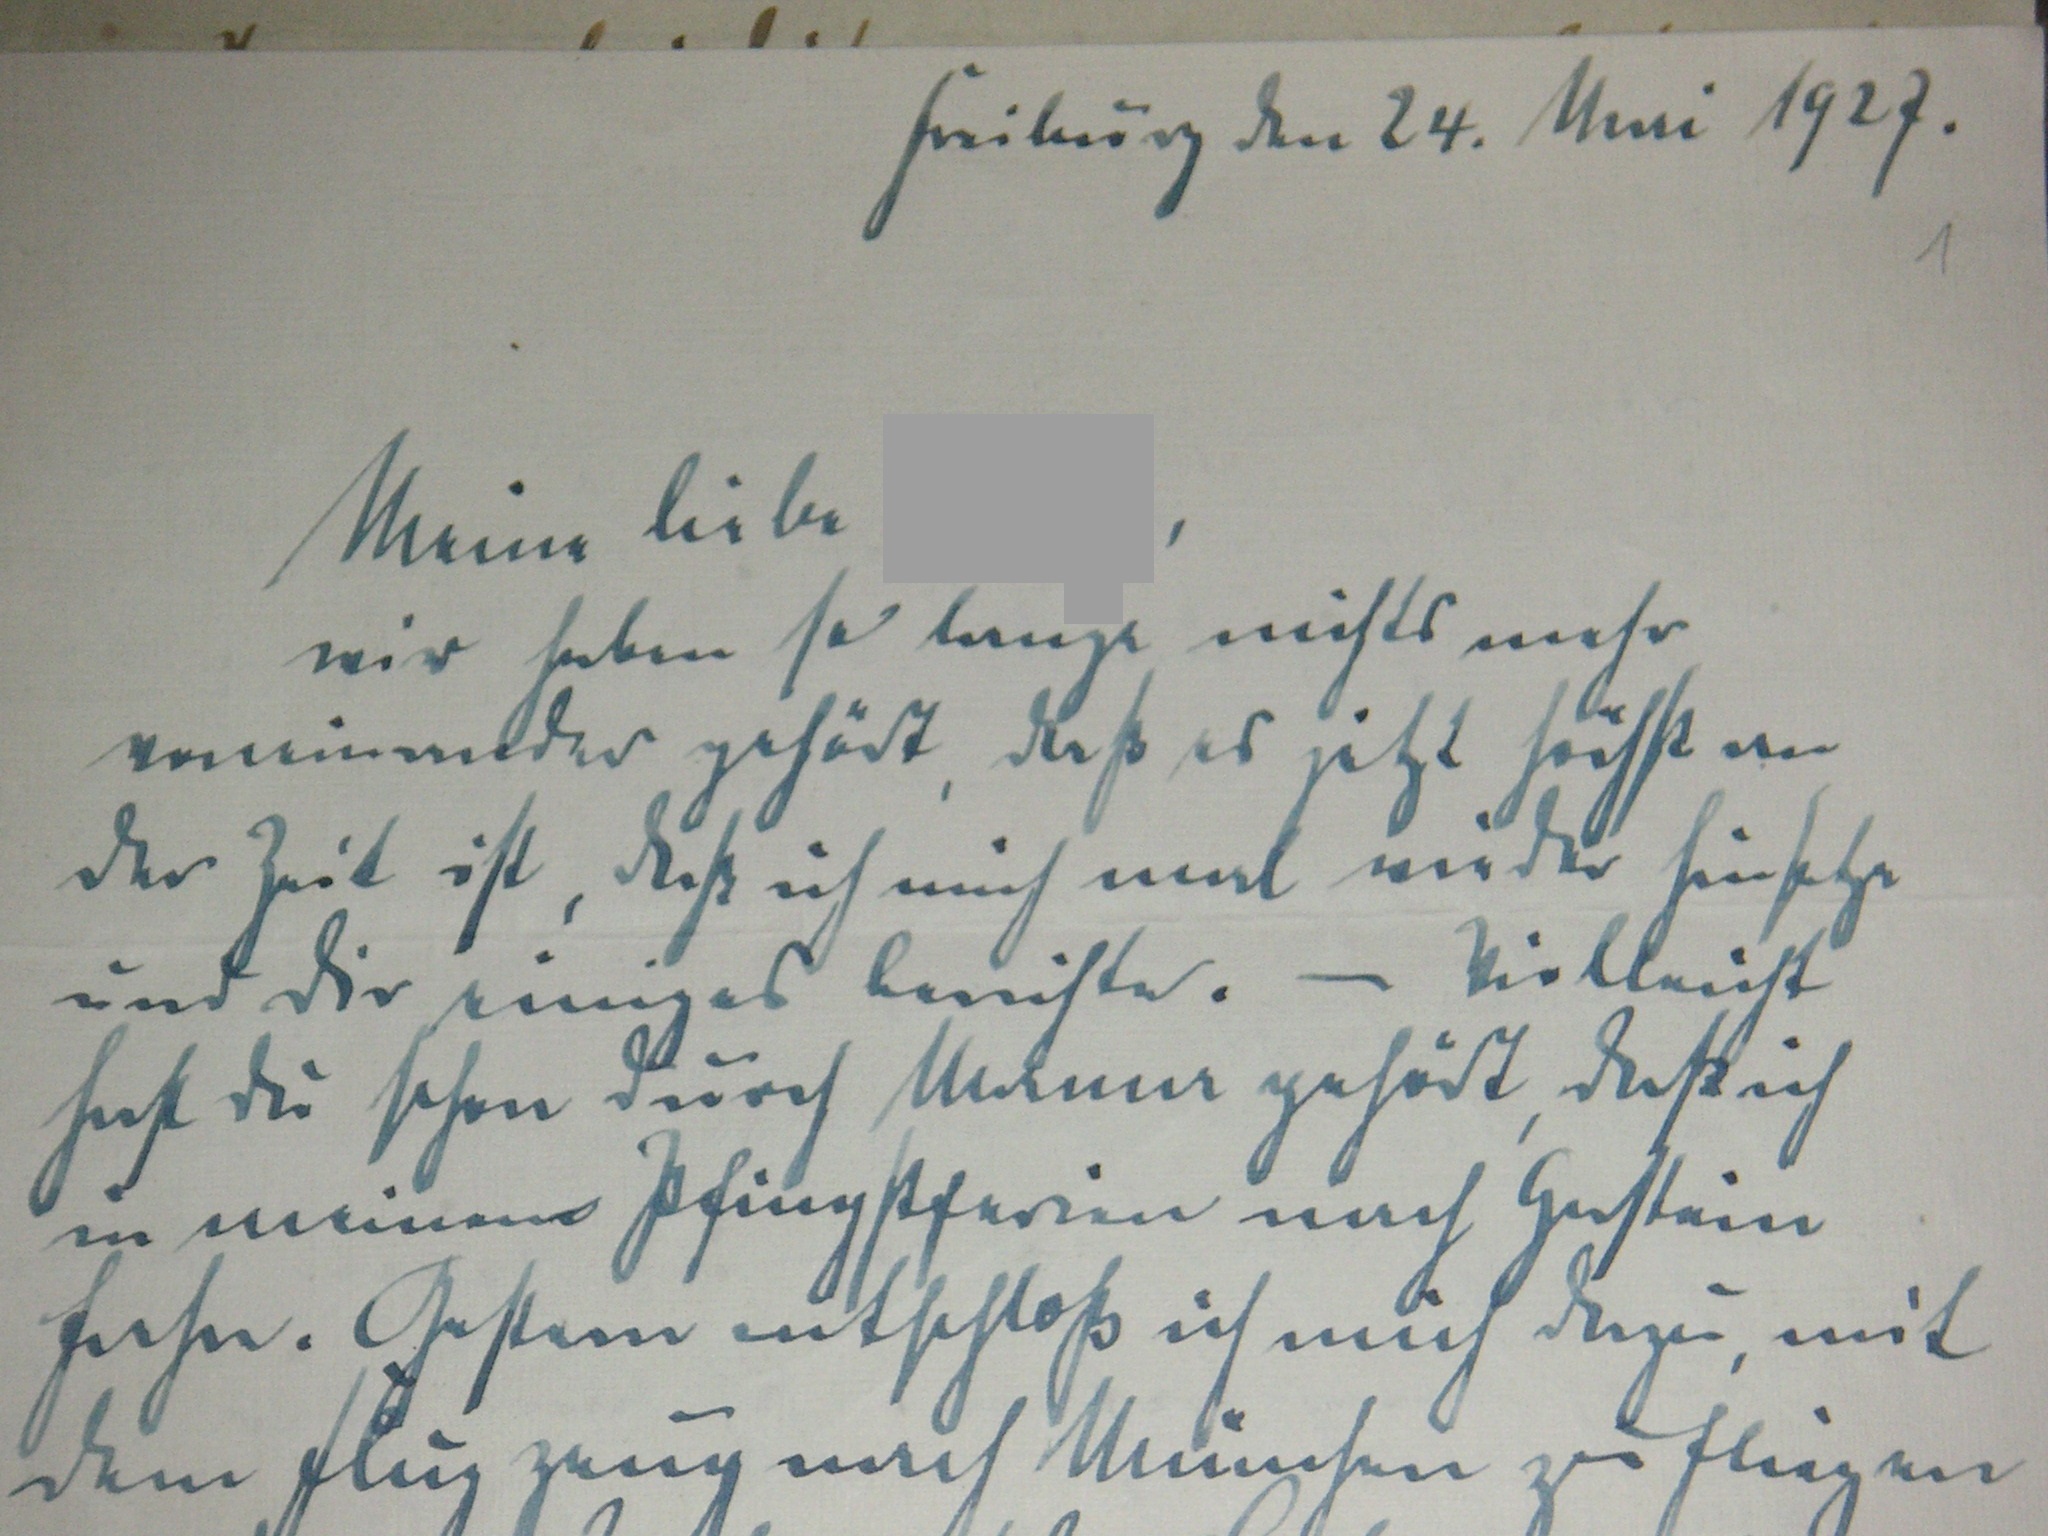 Freiburg den 24. Mai 1927.
1
Meine liebe ,
wir haben so lange nichts mehr
voneinander gehört, daß es jetzt höchst an
der Zeit ist, daß ich mich mal wieder hinsetze
und dir einiges berichte. — Vielleicht
hast du schon durch Mama gehört, daß ich
in meinen Pfingstferien nach Gastein
fahre. Gestern entschloß ich mich dazu, mit
dem Flugzeug nach München zu fliegen